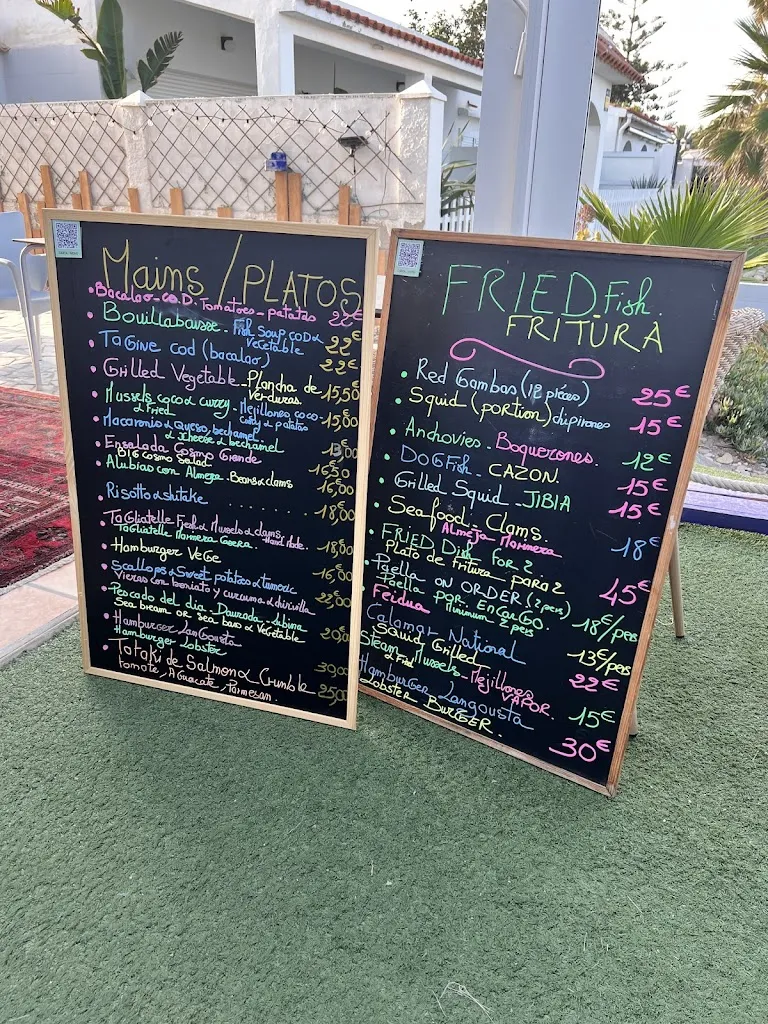 Mains / PLATOS
Bacalao - CO.D. Tomatoes - patatas 22€
Bouillabaisse - Fish Soup, COD &
Vegetable 22€
TaGine cod (bacalao) 22€
Grilled Vegetable - Plancha de
Verduras. 15,50
Mussels coco & curry - Mejillones coco
& Fried curry & patatas 15,00
Macaronis & Queso, bechamel
& scheese & bechamel 13,00
Ensalada Cosmo Grande
BIG Cosmo Salad 16,50
Alubias con Almeja. Beans & clams 16,00
Risotto & shitake 18,00
TaGliatelle Fresh & Mussels & clams
Hand Made.
Tagliatelle Marinera Casera. 18,00
Hamburger VeGe 16,00
Scallops & Sweet potatoes & tumeric
Vieras con boniato y curcuma & chirivilla 22,00
Pescado del dia - Daurada - Lubina
Sea bream or Sea bass & Vegetable 20,00
Hamburger Langousta
Hamburger Lobster 30,00
Tataki de Salmon & Crumble
tomate, Aguacate, Parmesan. 25,00
FRIED. Fish.
FRITURA
Red Gambas (12 pieces) 25€
Squid (portion) chipirones 15€
Anchovies. Boquerones. 12€
DOGFish. CAZON. 15€
Grilled Squid - JIBIA 15€
Seafood. Clams.
Almeja Marinera 18€
FRIED Dish for 2
Plato de fritura para 2 45€
Paella ON ORDER (2 pers)
Paella POR. EncarGO. 18€/pers
Feidua Minimum 2 pers 13€/pers
Calamar National
Squid Grilled 22€
Steam Mussels - Mejillones
& Fried VAPOR. 15€
Hamburger Langousta
Lobster BURGER. 30€